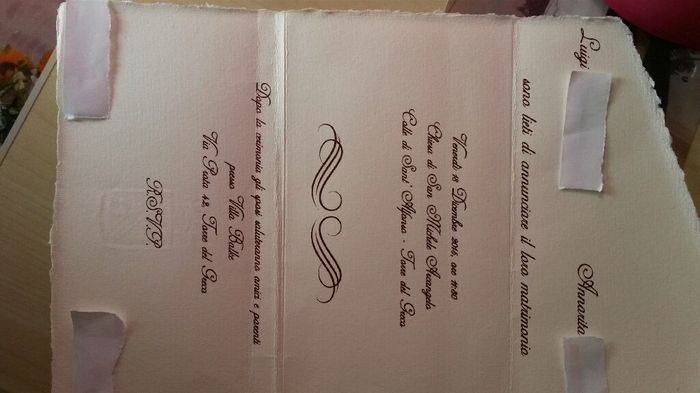 Luigi Annarita
sono lieti di annunciare il loro matrimonio
Venerdì 18 Dicembre 2015, ore 11:30
Chiesa di San Michele Arcangelo
Colle di Sant' Alfonso - Torre del Greco
Dopo la cerimonia gli sposi saluteranno amici e parenti
presso Villa Balke
Via Prota 42, Torre del Greco
R.S.V.P.